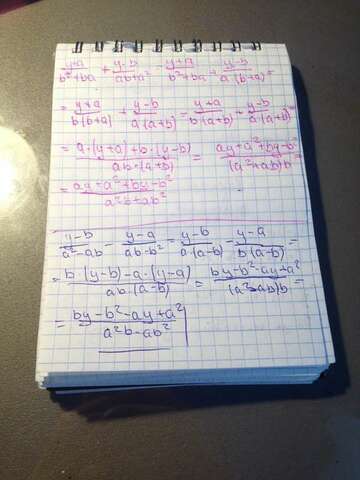 (y+a)/(b²+ba) + (y-b)/(ab+a²) = (y+a)/(b²+ba) + (y-b)/(a·(b+a)) =
= (y+a)/(b(b+a)) + (y-b)/(a(a+b)) = (y+a)/(b(a+b)) + (y-b)/(a(a+b)) =
= (a·(y+a)+b·(y-b))/(ab·(a+b)) = (ay+a²+by-b²)/((a²+ab)b) =
= (ay+a²+by-b²)/(a²b+ab²)
(y-b)/(a²-ab) - (y-a)/(ab-b²) = (y-b)/(a(a-b)) - (y-a)/(b(a-b)) =
= (b(y-b)-a·(y-a))/(ab(a-b)) = (by-b²-ay+a²)/((a²-ab)b) =
= (by-b²-ay+a²)/(a²b-ab²)